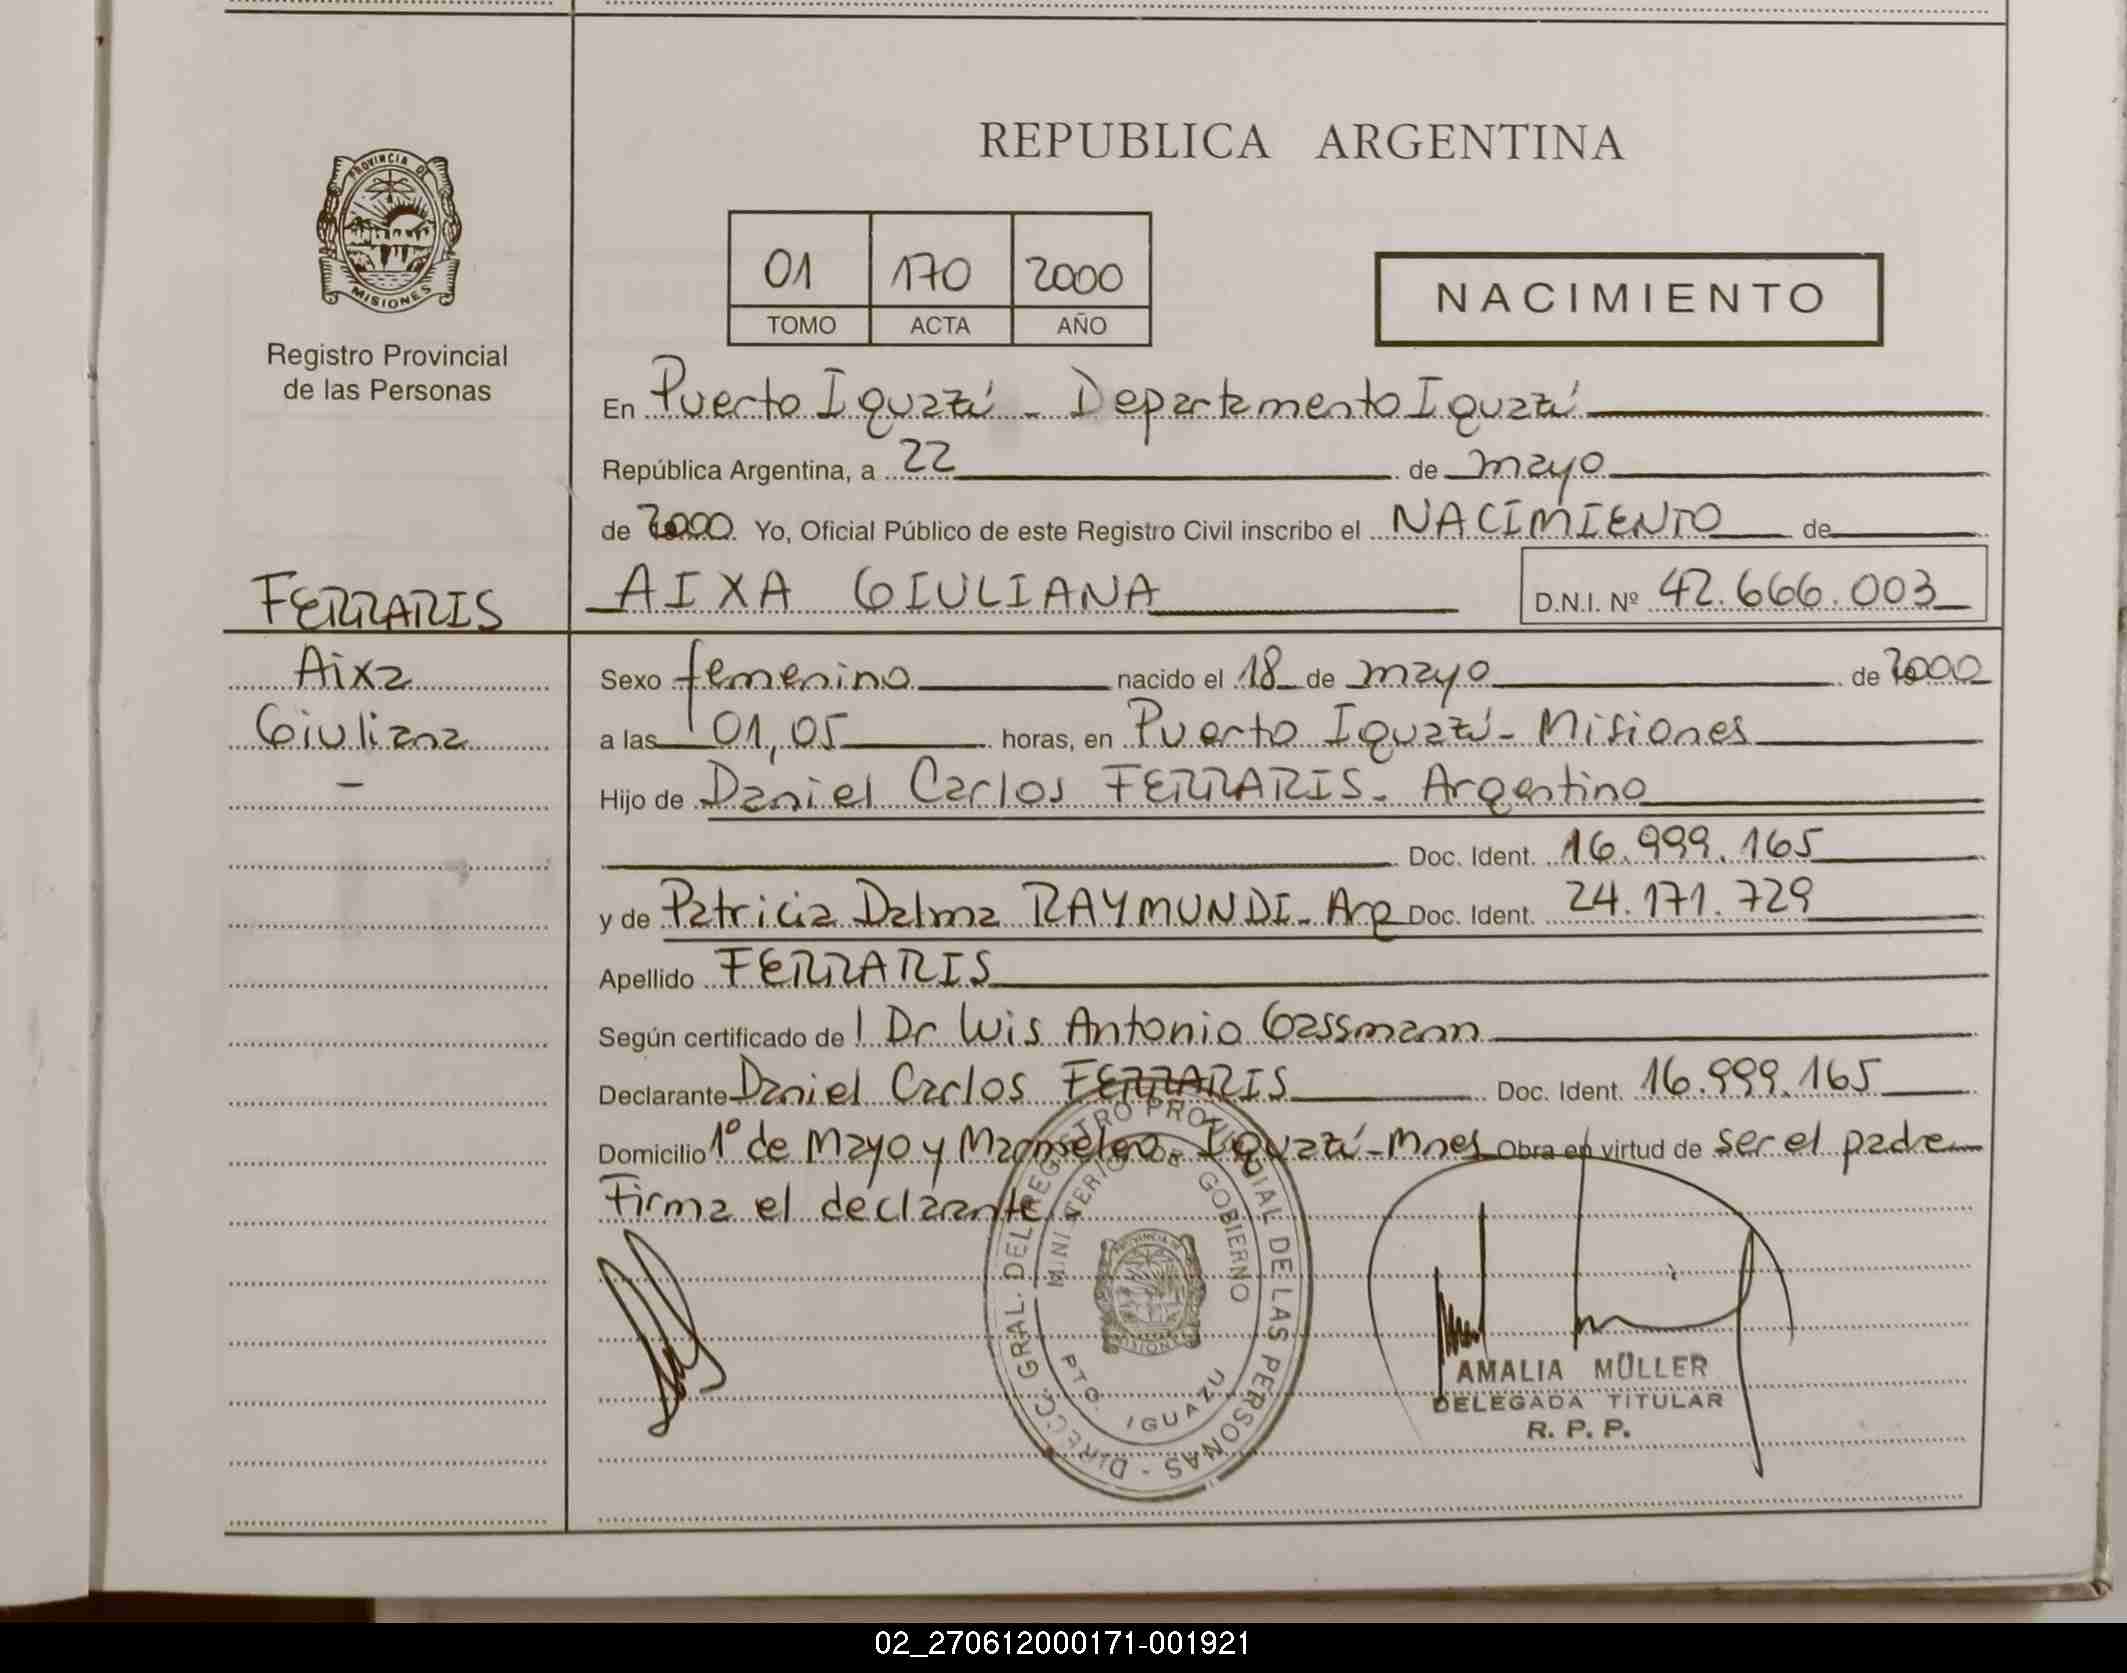 REPUBLICA ARGENTINA
PROVINCIA DE
MISIONES
Registro Provincial
de las Personas
01 170 2000
TOMO ACTA AÑO
NACIMIENTO
En Puerto Iguazú - Departamento Iguazú
República Argentina, a 22 de mayo
de 2000 Yo, Oficial Público de este Registro Civil inscribo el NACIMIENTO de
FERRARIS
AIXA GIULIANA D.N.I. Nº 42.666.003
Aixa
Giuliana
-
Sexo femenino nacido el 18 de mayo de 2000
a las 01,05 horas, en Puerto Iguazú - Misiones
Hijo de Daniel Carlos FERRARIS - Argentino
Doc. Ident. 16.999.165
y de Patricia Dalma RAYMUNDI - Arg Doc. Ident. 24.171.729
Apellido FERRARIS
Según certificado de l Dr Luis Antonio Gassmann
Declarante Daniel Carlos FERRARIS Doc. Ident. 16.999.165
Domicilio 1º de Mayo y Iguazú - Mnes Obra en virtud de ser el padre
Firma el declarante
DIRECC. GRAL. DEL REGISTRO PROVINCIAL DE LAS PERSONAS -
MINISTERIO DE GOBIERNO
PROVINCIA DE
MISIONES
PTO. IGUAZU
AMALIA MÜLLER
DELEGADA TITULAR
R. P. P.
02_270612000171-001921